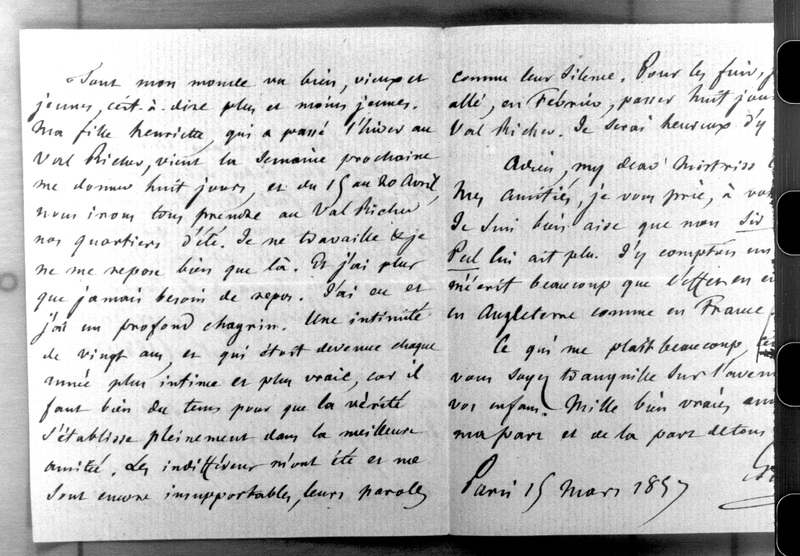 Tout mon monde va bien, vieux et
jeunes, c'est-à-dire plus et moins jeunes.
Ma fille Henriette, qui a passé l'hiver au
Val Richer, vient la semaine prochaine
me donner huit jours, et du 15 au 20 Avril,
nous irons tous prendre au Val Richer
nos quartiers d'été. Je ne travaille et je
ne me repose bien que là. Et j'ai plus
que jamais besoin de repos. J'ai eu et
j'ai un profond chagrin. Une intimité
de vingt ans, et qui étoit devenue chaque
année plus intime et plus vraie, car il
faut bien du tems pour que la vérité
s'établisse pleinement dans la meilleure
amitié. Les indifférens m'ont été et me
sont encore insupportables, leurs paroles
comme leur silence. Pour les fuir, j
allé, en Février, passer huit jours
Val Richer. Je serai heureux d'y
Adieu, my dear Mistriss
Mes amitiés, je vous prie, à vo
Je suis bien aise que mon Sir
Peel lui ait plu. J'y comptois un
m'écrit beaucoup que l'effet en e
en Angleterre comme en France.
Ce qui me plaît beaucoup,
vous soyez tranquille sur l'aveni
vos enfans. Mille bien vraies ami
ma part et de la part de tous
Paris 15 Mars 1857